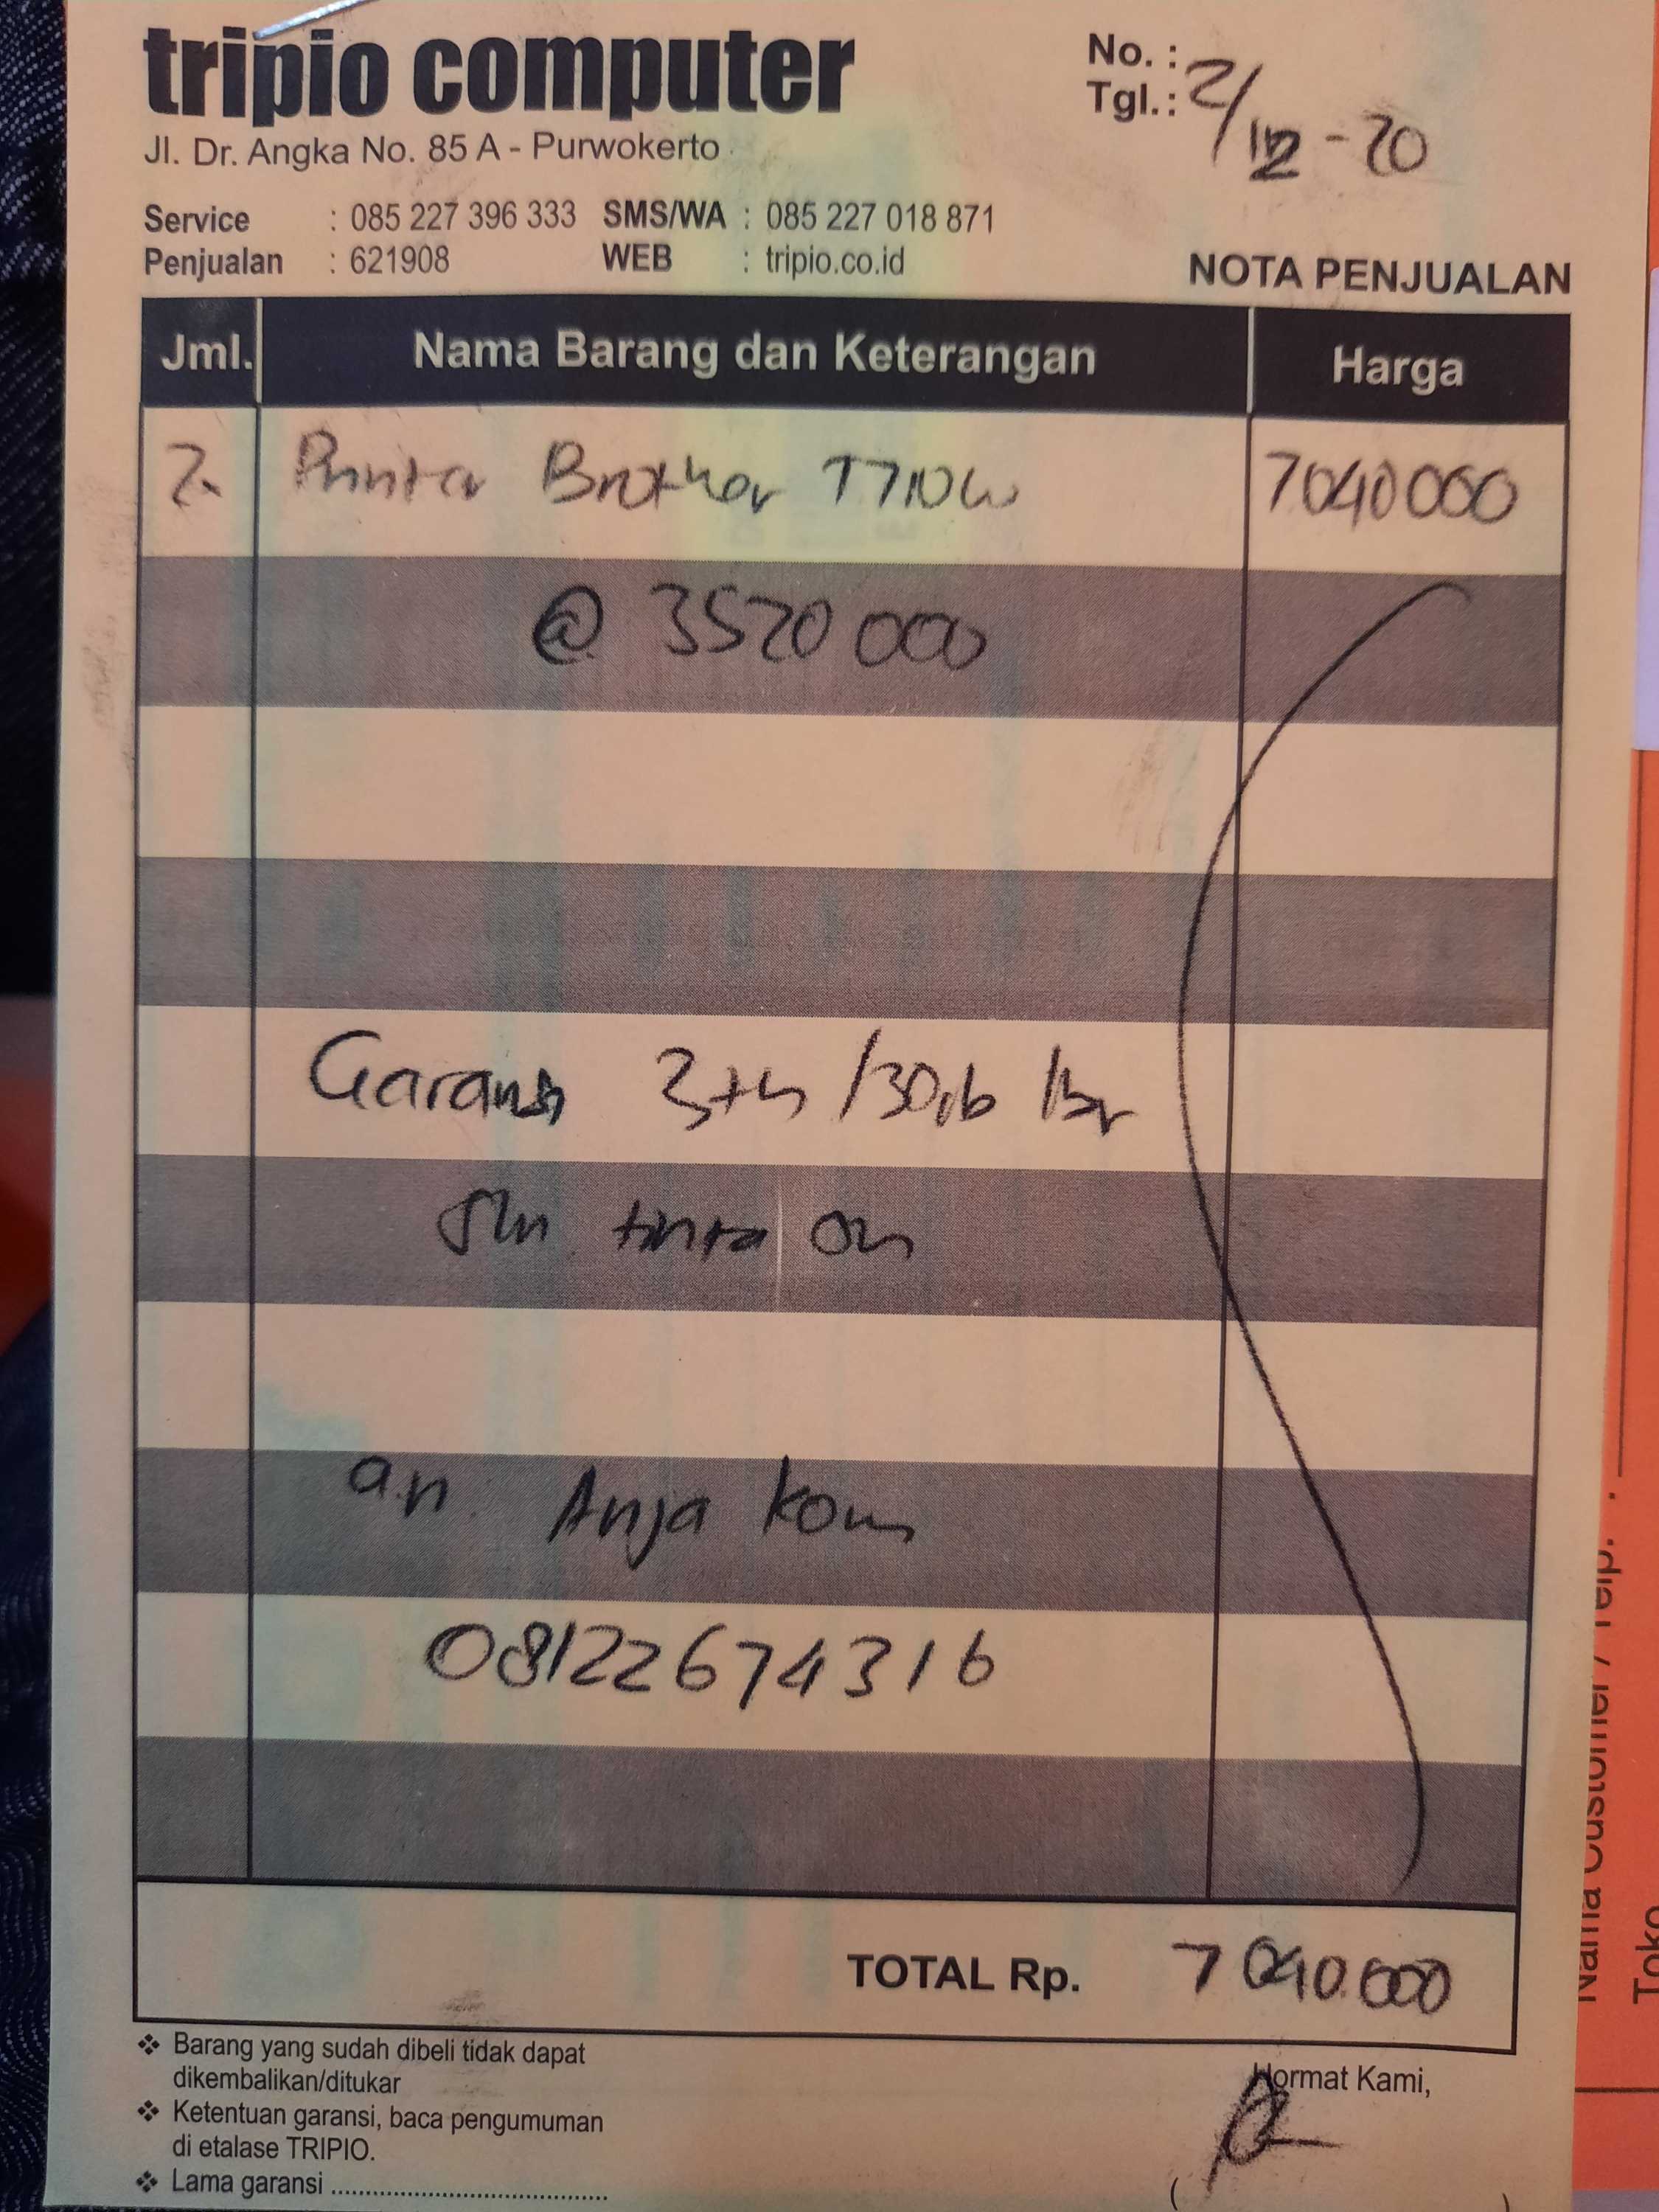 tripio computer
Jl. Dr. Angka No. 85 A - Purwokerto
No. :
Tgl. : 2/12-20
Service : 085 227 396 333 SMS/WA : 085 227 018 871
Penjualan : 621908 WEB : tripio.co.id
NOTA PENJUALAN
Jml. Nama Barang dan Keterangan Harga
2. Printer Brother T710W 7040000
@ 3520 000
Garansi 3 th /30rb lbr
tinta
a.n Anja Kom
08122674316
TOTAL Rp. 7 040.000
❖ Barang yang sudah dibeli tidak dapat
dikembalikan/ditukar
❖ Ketentuan garansi, baca pengumuman
di etalase TRIPIO.
❖ Lama garansi ..........................................
Hormat Kami,
( )
Nama Customer / Telp. :
Toko